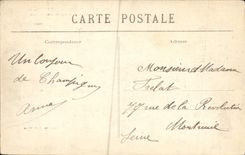 CARTE POSTALE
Correspondance
Adresse
Un bonjour
de Champigny
Anna
Monsieur et Madame
Trelat
77 rue de la Révolution
Montreuil
Seine